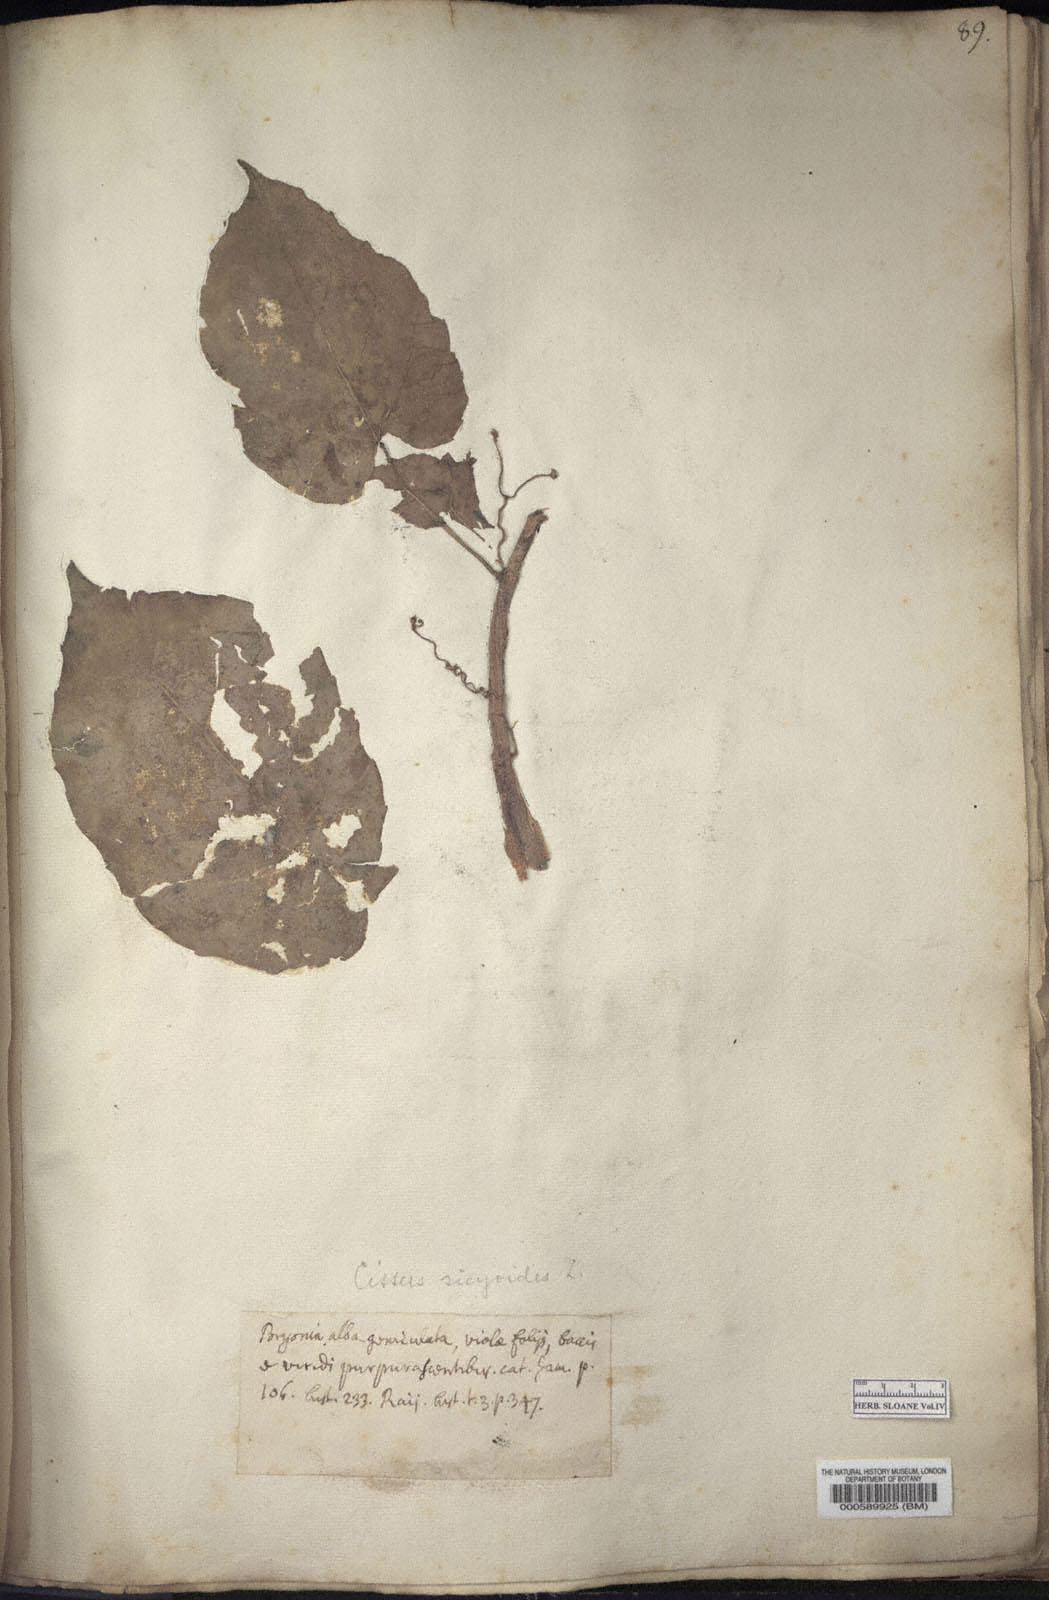 89.
Cissus sicyoides L.
Bryonia alba geniculata, violæ folijs, baccis
e viridi purpurascentibus. cat. Jam. p.
106. hist. 233. Raij. hist. t. 3. p. 347.
mm 1 2 3
HERB. SLOANE Vol.IV
THE NATURAL HISTORY MUSEUM, LONDON
DEPARTMENT OF BOTANY
000589925 (BM)